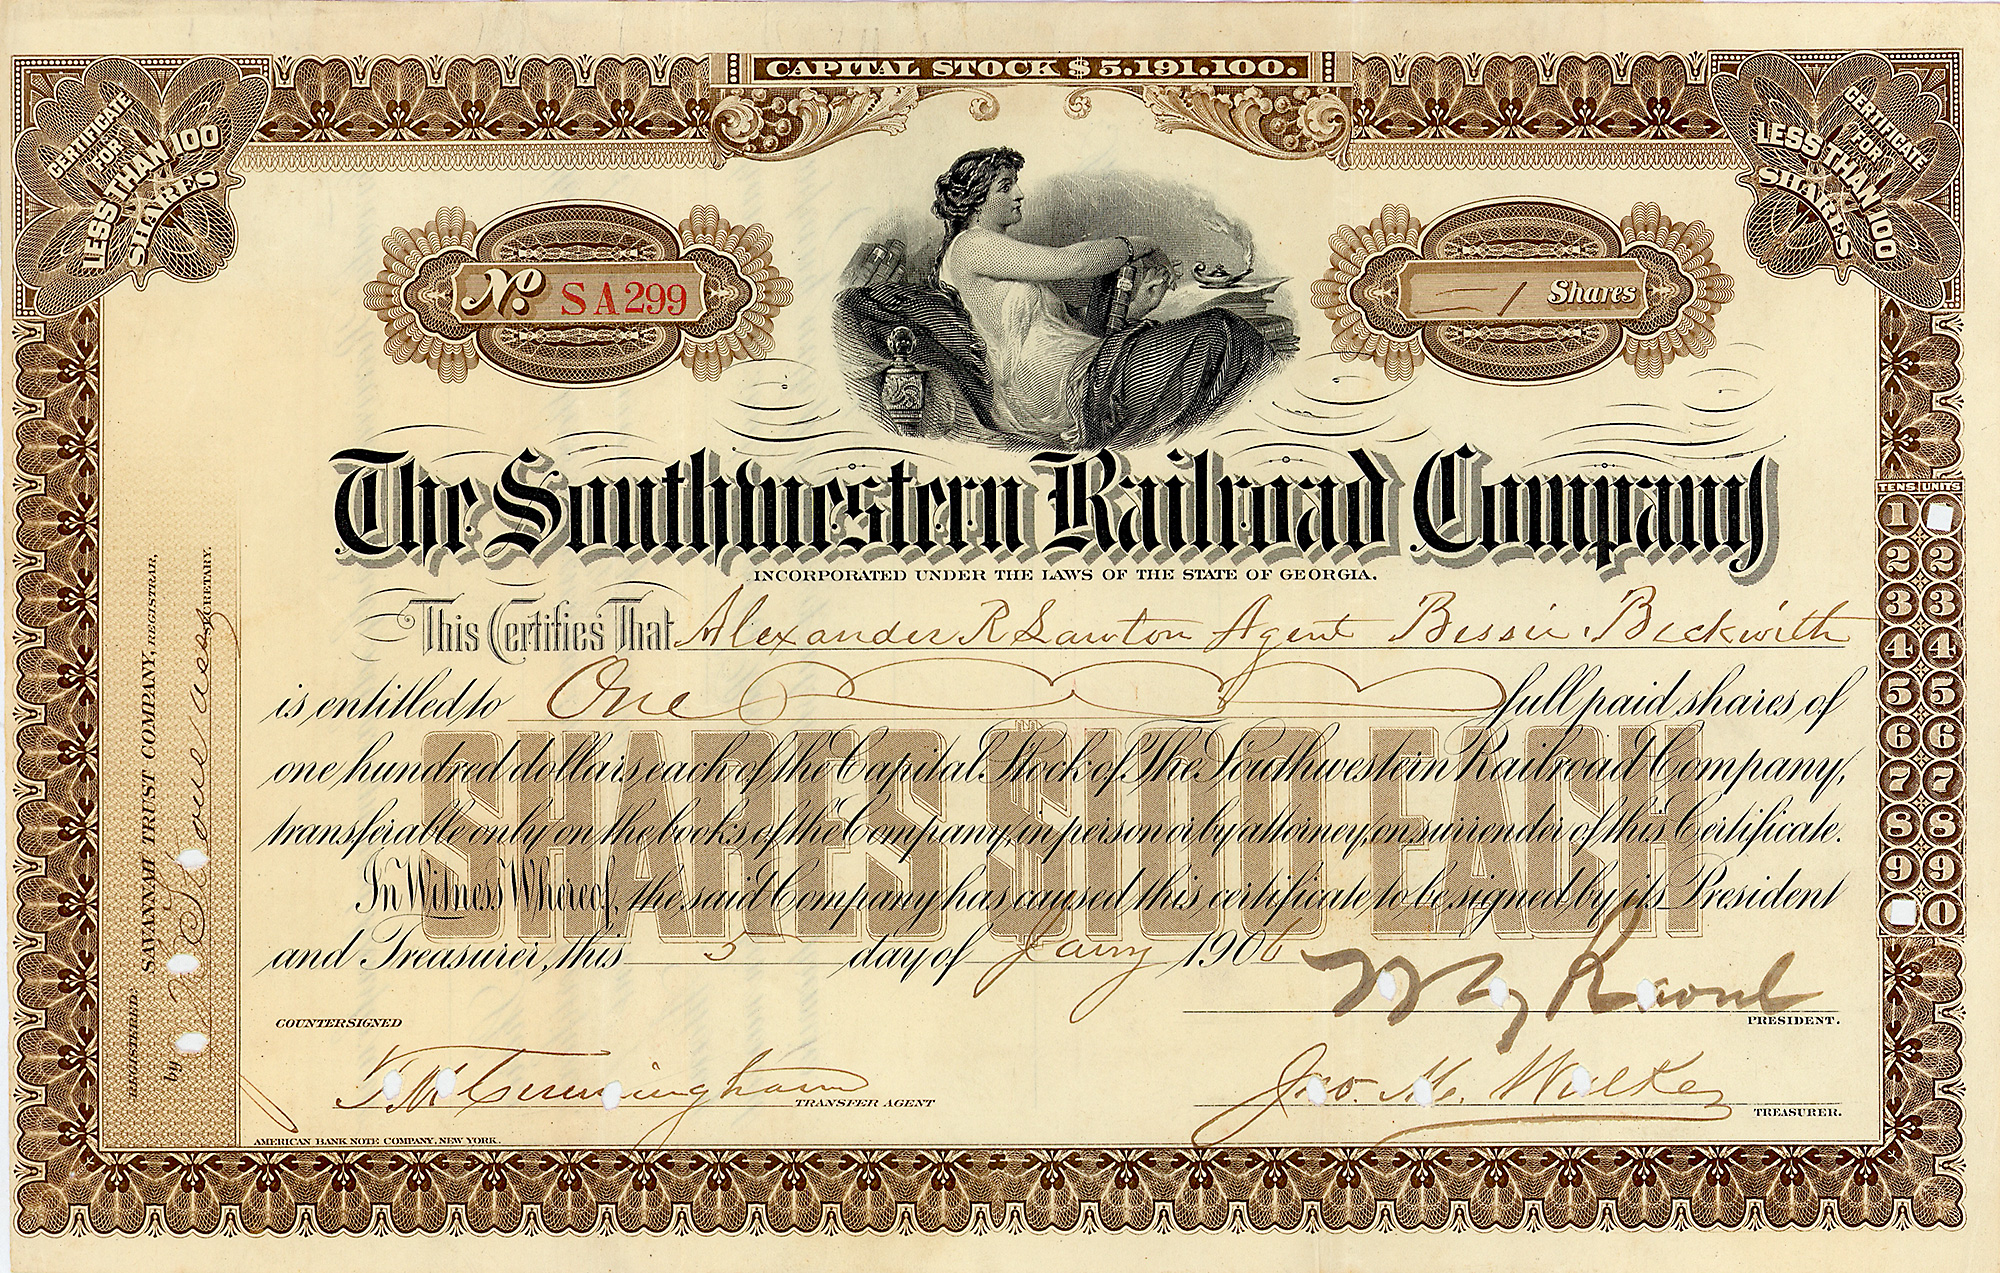 CAPITAL STOCK $5,191,100.
CERTIFICATE
FOR
LESS THAN 100
SHARES
CERTIFICATE
FOR
LESS THAN 100
SHARES
No. SA299
1 Shares
The Southwestern Railroad Company
INCORPORATED UNDER THE LAWS OF THE STATE OF GEORGIA.
This Certifies That Alexander R Lawton Agent Bessie Beckwith
is entitled to One full paid shares of
one hundred dollars each of the Capital Stock of The Southwestern Railroad Company,
transferable only on the books of the Company, in person or by attorney, on surrender of this Certificate.
In Witness Whereof, the said Company has caused this certificate to be signed by its President
and Treasurer, this 5 day of Jany 1906
SHARES $100 EACH
TENS UNITS
1
2 2
3 3
4 4
5 5
6 6
7 7
8 8
9 9
0
Raoul
PRESIDENT.
COUNTERSIGNED
T M Cunningham
TRANSFER AGENT
Jno. M. Walker
TREASURER.
REGISTERED: SAVANNAH TRUST COMPANY, REGISTRAR,
by SECRETARY.
AMERICAN BANK NOTE COMPANY, NEW YORK.